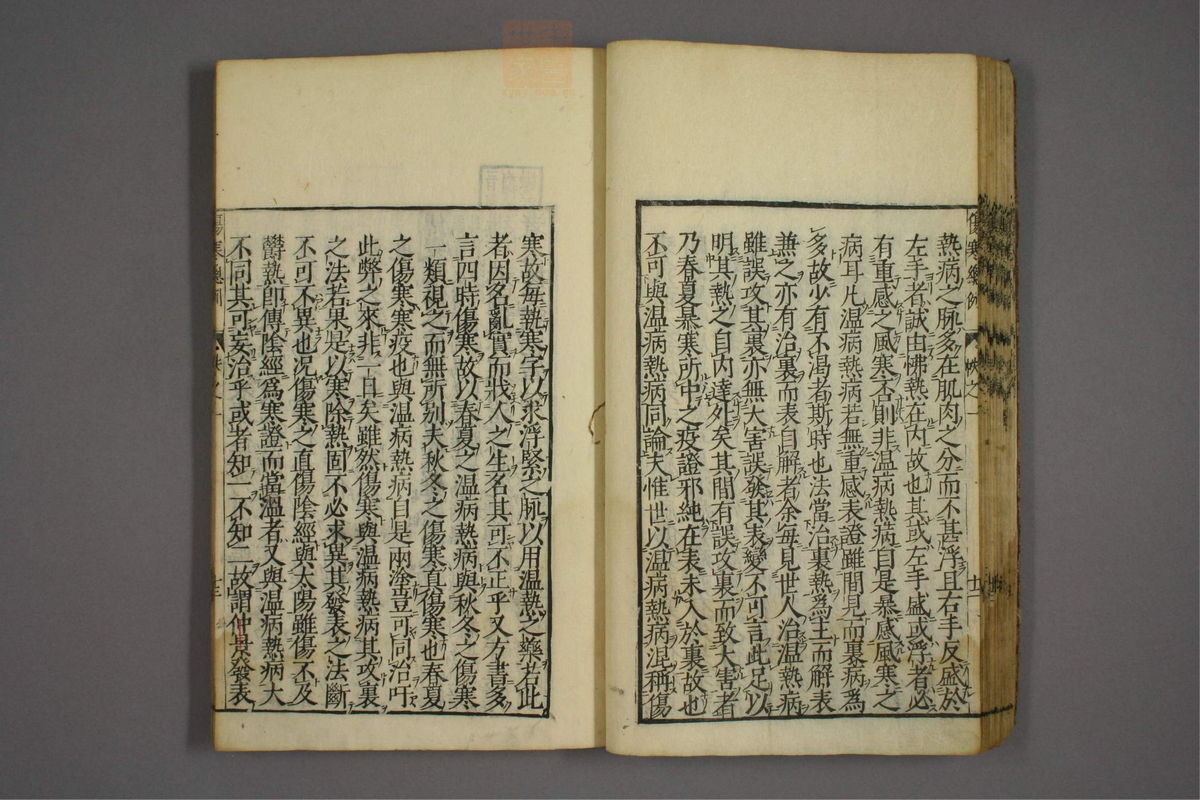 熱病之脉多在肌肉之分而不甚浮且右手反盛於
左手者誠由怫熱在内故也其或左手盛或浮者必
有重感之風寒否則非温病熱病自是暴感風寒之
病耳凡温病熱病若無重感表證雖間見而裏病爲
多故少有不渴者斯時也法當治裏熱爲主而解表
兼之亦有治裏而表自解者余每見世人治温熱病
雖誤攻其裏亦無大害誤發其表變不可言此足以
明其熱之自内達外矣其間有誤攻裏而致大害者
乃春夏暴寒所中之疫證邪純在表未入於裏故也
不可與温病熱病同論夫惟世以温病熱病混稱傷
寒故每執寒字以求浮緊之脉以用温熱之藥若此
者因名亂實而戕人之生名其可不正乎又方書多
言四時傷寒故以春夏之温病熱病與秋冬之傷寒
一類視之而無所别夫秋冬之傷寒真傷寒也春夏
之傷寒寒疫也與温病熱病自是兩塗豈可同治吁
此弊之來非一日矣雖然傷寒與温病熱病其攻裏
之法若果是以寒除熱固不必求異其發表之法斷
不可不異也况傷寒之直傷陰經與太陽雖傷不及
欝熱即傳陰經爲寒證而當温者又與温病熱病大
不同其可妄治乎或者知一不知二故謂仲景發表